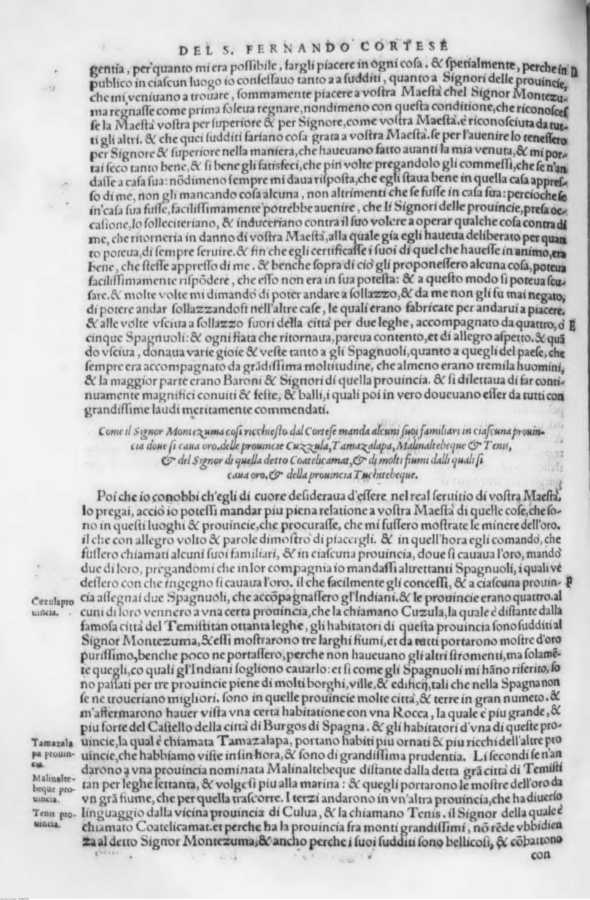 DEL S. FERNANDO CORTESE
gentia, per quanto mi era possibile, fargli piacere in ogni cosa. & spetialmente, perche in D
publico in ciascun luogo io confessauo tanto a a sudditi, quanto a Signori delle prouincie,
che mi veniuano a trouare, sommamente piacere a vostra Maestà chel Signor Montezu-
ma regnasse come prima soleua regnare, nondimeno con questa conditione, che riconosces
se la Maestà vostra per superiore & per Signore, come vostra Maestà è riconosciuta da tut-
ti gli altri. & che quei sudditi fariano cosa grata a vostra Maestà. se per l'auenire lo tenessero
per Signore & superiore nella maniera, che haueuano fatto auanti la mia venuta, & mi por-
tai seco tanto bene, & si bene gli satisfeci, che piu volte pregandolo gli commessi, che se n'an
dasse a casa sua: nõdimeno sempre mi daua risposta, che egli staua bene in quella casa appres-
so di me, non gli mancando cosa alcuna, non altrimenti che se fusse in casa sua: percioche se
in casa sua fusse, facilissimamente potrebbe auenire, che li Signori delle prouincie, presa oc-
casione, lo solleciteriano, & induceriano contra il suo volere a operar qualche cosa contra di
me, che ritorneria in danno di vostra Maestà, alla quale gia egli haueua deliberato per quan
to poteua, di sempre seruire. & fin che egli certificasse i suoi di quel che hauesse in animo, era
bene, che stesse appresso di me. & benche sopra di ciò gli proponessero alcuna cosa, poteua
facilissimamente rispõdere, che esso non era in sua potestà: & a questo modo si poteua scu-
sare. & molte volte mi dimandò di poter andare a sollazzo, & da me non gli fu mai negato,
di potere andar sollazzandosi nell'altre case, le quali erano fabricate per andarui a piacere.
& alle volte vsciua a sollazzo fuori della città per due leghe, accompagnato da quattro, ò E
cinque Spagnuoli: & ogni fiata che ritornaua, pareua contento, et di allegro aspetto. & quã
do vsciua, donaua varie gioie & veste tanto a gli Spagnuoli, quanto a quegli del paese, che
sempre era accompagnato da grãdissima moltitudine, che almeno erano tremila huomini,
& la maggior parte erano Baroni & Signori di quella prouincia. & si dilettaua di far conti-
nuamente magnifici conuiti & feste, & balli, i quali poi in vero doueuano esser da tutti con
grandissime laudi meritamente commendati.
Come il Signor Montezuma così richiesto dal Cortese manda alcuni suoi familiari in ciascuna prouin-
cia doue si caua oro. delle prouincie Cuzzula, Tamazalapa, Malinaltebeque & Tenis,
& del Signor di quella detto Coatelicamat, & di molti fiumi dalli quali si
caua oro. & della prouincia Tuchitebeque.
Poi che io conobbi ch'egli di cuore desideraua d'essere nel real seruitio di vostra Maestà,
lo pregai, acciò io potessi mandar piu piena relatione a vostra Maestà di quelle cose, che so-
no in questi luoghi & prouincie, che procurasse, che mi fussero mostrate le minere dell'oro.
il che con allegro volto & parole dimostrò di piacergli. & in quell'hora egli comandò, che
fussero chiamati alcuni suoi familiari, & in ciascuna prouincia, doue si cauaua l'oro, mandò
due di loro, pregandomi che in lor compagnia io mandassi altrettanti Spagnuoli, i quali ve
dessero con che ingegno si cauaua l'oro. il che facilmente gli concessi, & a ciascuna prouin- F
cia assegnai due Spagnuoli, che accõpagnassero gl'Indiani. & le prouincie erano quattro. al
Cuzula pro
uincia.
cuni di loro vennero a vna certa prouincia, che la chiamano Cuzula, la quale è distante dalla
famosa città del Temistitan ottanta leghe, gli habitatori di questa prouincia sono sudditi al
Signor Montezuma, & essi mostrarono tre larghi fiumi, et da tutti portarono mostre d'oro
purissimo, benche poco ne portassero, perche non haueuano gli altri stromenti, ma solamẽ-
te quegli, co quali gl'Indiani sogliono cauarlo: et si come gli Spagnuoli mi hãno riferito, so
no passati per tre prouincie piene di molti borghi, ville, & edificii, tali che nella Spagna non
se ne troueriano migliori. sono in quelle prouincie molte città, & terre in gran numero. &
m'affermarono hauer vista vna certa habitatione con vna Rocca, la quale è piu grande, &
piu forte del Castello della città di Burgos di Spagna. & gli habitatori d'vna di queste pro-
Tamazala
pa prouin-
cia.
uincie, la qual è chiamata Tamazalapa, portano habiti piu ornati & piu ricchi dell'altre pro
uincie, che habbiamo viste insin hora, & sono di grandissima prudentia. Li secondi se n'an
darono a vna prouincia nominata Malinaltebeque distante dalla detta grã città di Temisti
Malinalte-
beque pro-
uincia.
tan per leghe settanta, & volgesi piu alla marina: & quegli portarono le mostre dell'oro da
vn grã fiume, che per quella trascorre. I terzi andarono in vn'altra prouincia, che ha diuerso
Tenis pro-
uincia.
linguaggio dalla vicina prouincia di Culua, & la chiamano Tenis. il Signor della quale è
chiamato Coatelicamat. et perche ha la prouincia fra monti grandissimi, nõ rẽde vbbidien
za al detto Signor Montezuma, & ancho perche i suoi sudditi sono bellicosi, & cõbattono
con